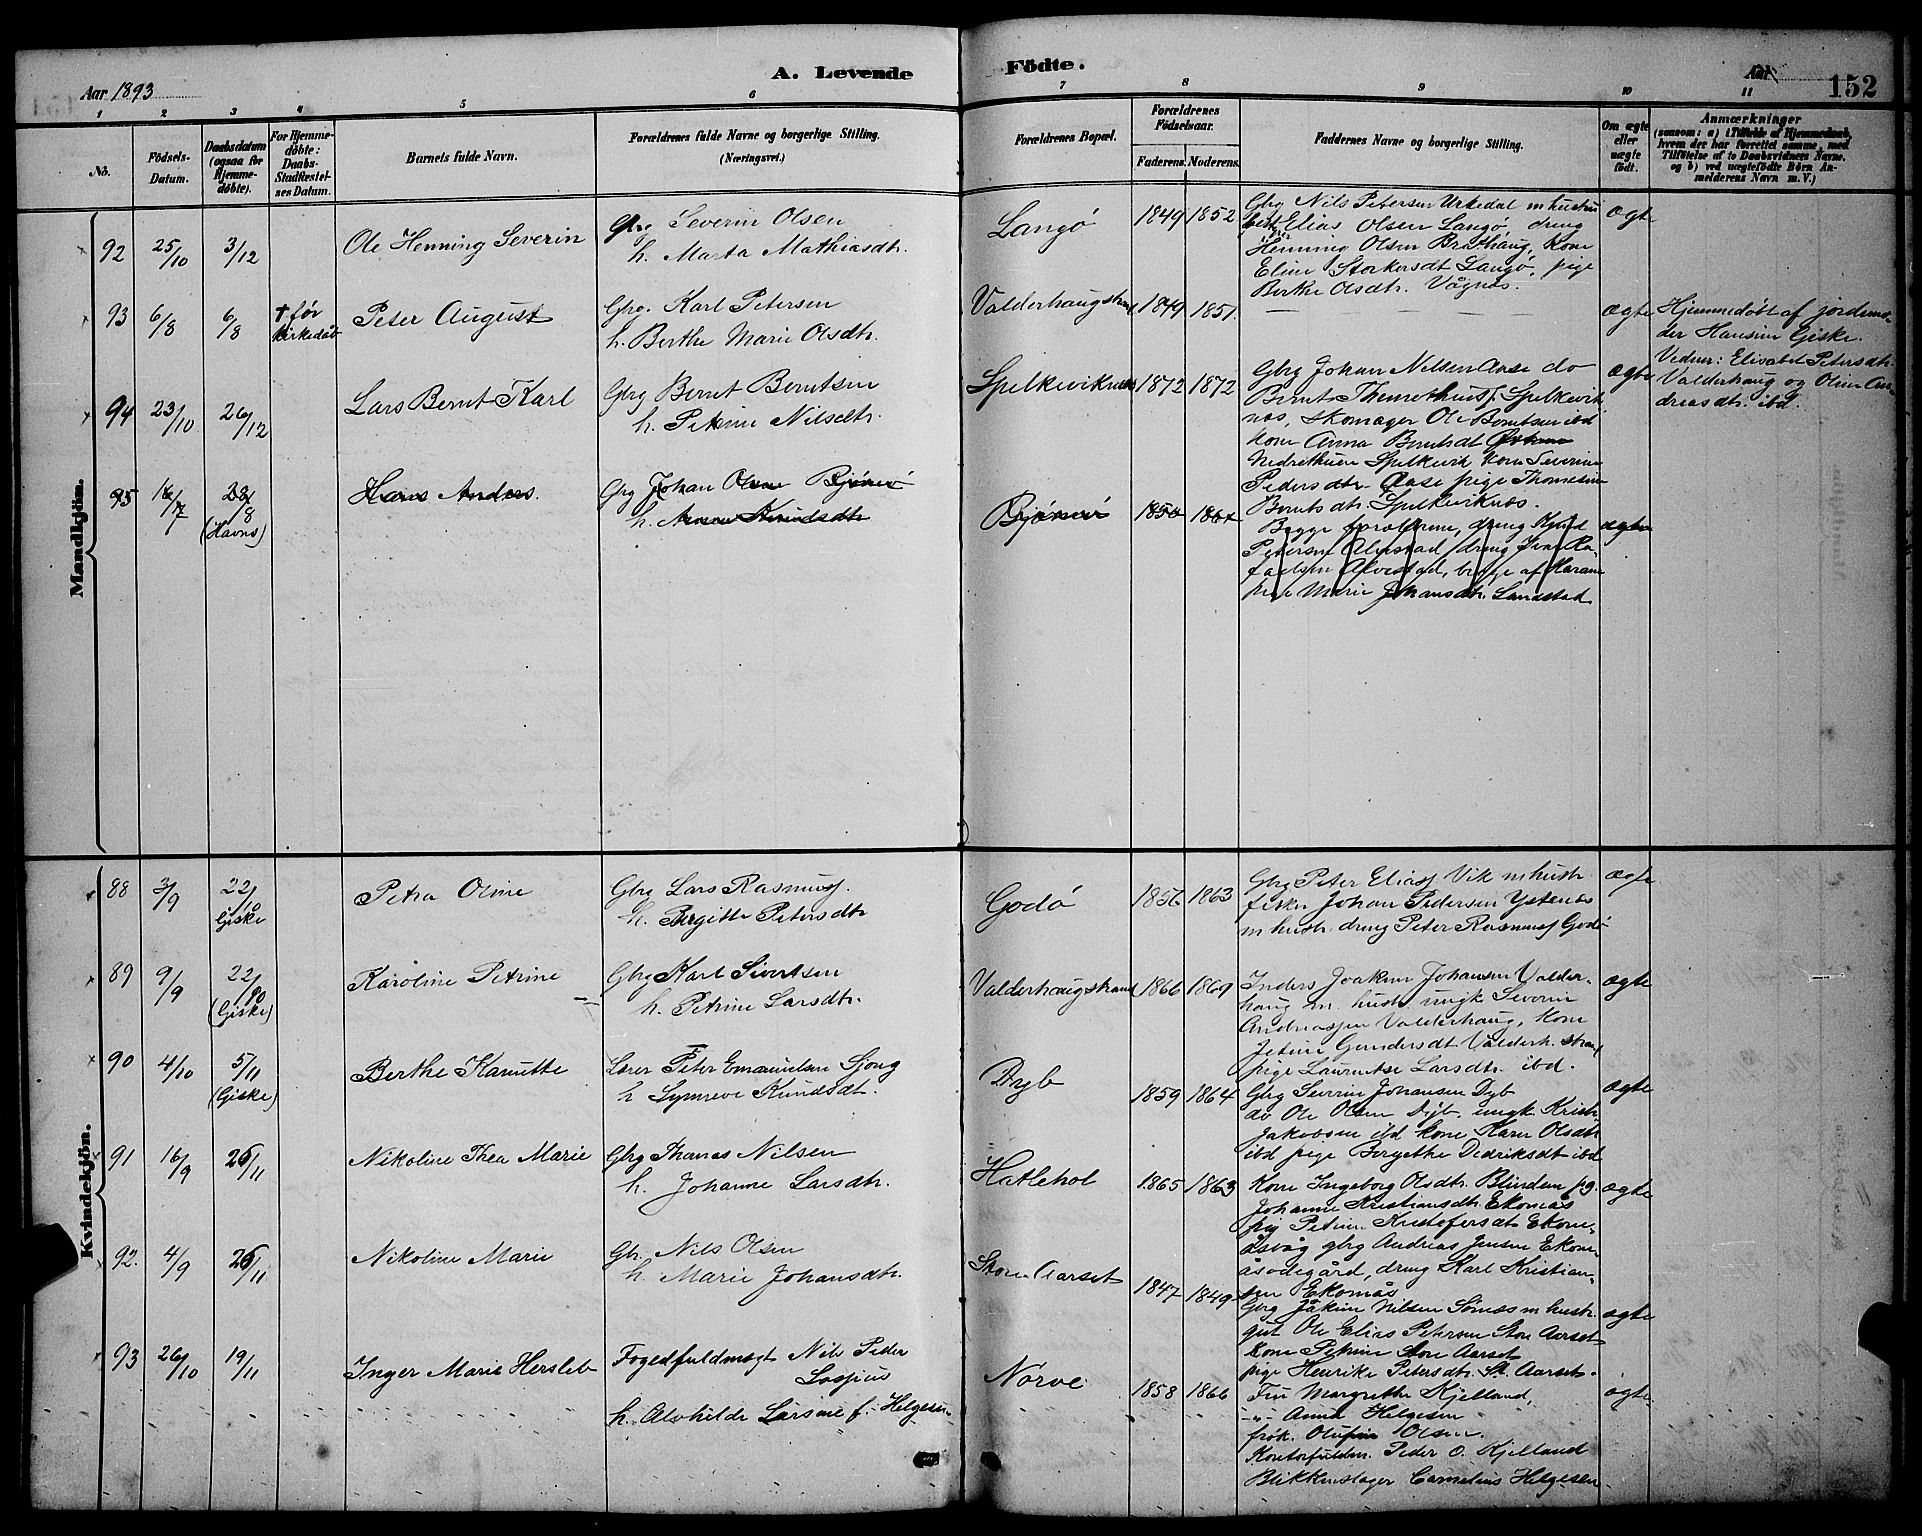 A. Levende Födte.
Aar 1893
Aar
152
1 2 3 4 5 6 7 8 9 10 11
No.
Födsels-Datum.
Daabsdatum (ogsaa for Hjemmedöbte).
For Hjemmedöbte: Daabs-Stadfæstelses Datum.
Barnets fulde Navn.
Forældrenes fulde Navne og borgerlige Stilling.
(Næringsvei.)
Forældrenes Bopæl.
Forældrenes Födselsaar.
Faderens. Moderens.
Faddernes Navne og borgerlige Stilling.
Om ægte eller uægte födt.
Anmærkninger
(saasom: a) i Tilfælde af Hjemmedaab,
hvem der har forrettet samme, med
Tilföielse af to Daabsvidners Navne.
og b) ved uægtefödte Börn Anmelderens Navn m. V.)
Mandkjön.
92 25/10 3/12 Ole Henning Severin
Gbrg Severin Olsen
h. Marta Mathiasdtr.
Langø 1849 1852
Gbrg Nils Petersen Urkedal m hustru
Elias Olsen Langø, dreng
Henning Olsen Brathaug, Kone
Eline Storkersdt Langø, pige
Berthe Olsdtr. Vågnes.
ægte
93 6/8 6/8 † før kirkedåb Peter August
Gbrg. Karl Petersen
h. Berthe Marie Olsdtr.
Valderhaugstrand 1849 1851.
ægte
Hjemmedøbt af jordemo-
der Hansine Giske.
Vidner: Elisabet Petersdtr.
Valderhaug og Oline An-
dreasdtr. ibd.
94 23/10 26/12 Lars Bernt Karl
Gbrg Bernt Berntsen
h. Petrine Nilsdtr.
Spelkeviknes 1872 1872
Gbrg Johan Nilsen Aase do
Bernt Spelkevik
nes, Skomager Ole Berntsen ibd
kone Anna Berntsdt
Nedrethuen Spelkevik kone Severine
Pedersdtr. Aase pige Thomasine
Berntsdtr. Spelkeviknes.
ægte
95 23/8 (Havns) Hans Anders.
Gbrg Johan Olsen Bjørnø
h. Knudsdtr
Bjørnø 1850
Begge forældrene, dreng Knud
Petersen Alvestad, dreng
Alvestad, begge af Haram
pige Marie Johansdtr. Landstad
ægte
Kvindekjön.
88 3/9 22/10 Giske Petra Oline
Gbrg Lars Rasmuss.
h. Birgitte Petersdtr
Godø 1856 1863
Gbrg Peter Eliass Vik m hustr
fisker Johan Pedersen Ystenes
m hustr. dreng Peter Rasmuss Godø
ægte
89 9/9 22/10 (Giske) Karoline Petrine
Gbrg Karl Sivertsen
h. Petrine Larsdtr.
Valderhaugstrand 1866 1869
Inders Joakim Johansen Valder-
haug m. hustr ungk Severin
Andreassen Valderhaug, kone
Jetine Gundersdt Valderh. strand
pige Lauritse Larsdtr. ibd.
ægte
90 4/10 5/11 (Giske) Berthe Kanutte
Lærer Peter Emanuelsen Sjong
h Synneve Knudsdt.
Dyb 1859 1864
Gbrg Severin Johansen Dyb
do Ole Olsen Dyb. ungk Krist.
Jakobsen ibd kone Karen Olsdtr
ibd pige Bergethe Dedriksdt ibd
ægte
91 16/9 26/11 Nikoline Thea Marie
Gbrg Thomas Nilsen
h. Johanne Larsdtr.
Hatlehol 1865 1863
Kone Ingeborg Olsdtr. Blindem pg.
Johanne Kristiansdtr. Ekornås
pig Petrine Kristofersdt Ekorn-
åsvåg gbrg Andreas Jensen Ekorn-
åsødegård, dreng Karl Kristian-
sen Ekornås
ægte
92. 4/9 26/11 Nikoline Marie
Gbr. Nils Olsen
h. Marie Johansdtr.
Store Aarset 1847 1849
Gbrg Jåkim Nilsen Sørnes m hustr.
gut Ole Elias Petersen Store Aarset
Kone Petrine Store Aarset
pige Henrike Petersdtr. St. Aarset.
ægte
93 26/10 19/11 Inger Marie Hersleb
Fogedfuldmægt Nils Peder
Lossius
h. Alvhilde Larsine f. Helgesen
Nørve 1858 1866
Fru Margrethe Kjelland,
-"- Anna Helgesen
frøk. Olufine Olsen.
Kontorfuldm. Peder O. Kjelland
Blikkenslager Cornelius Helgesen
ægte